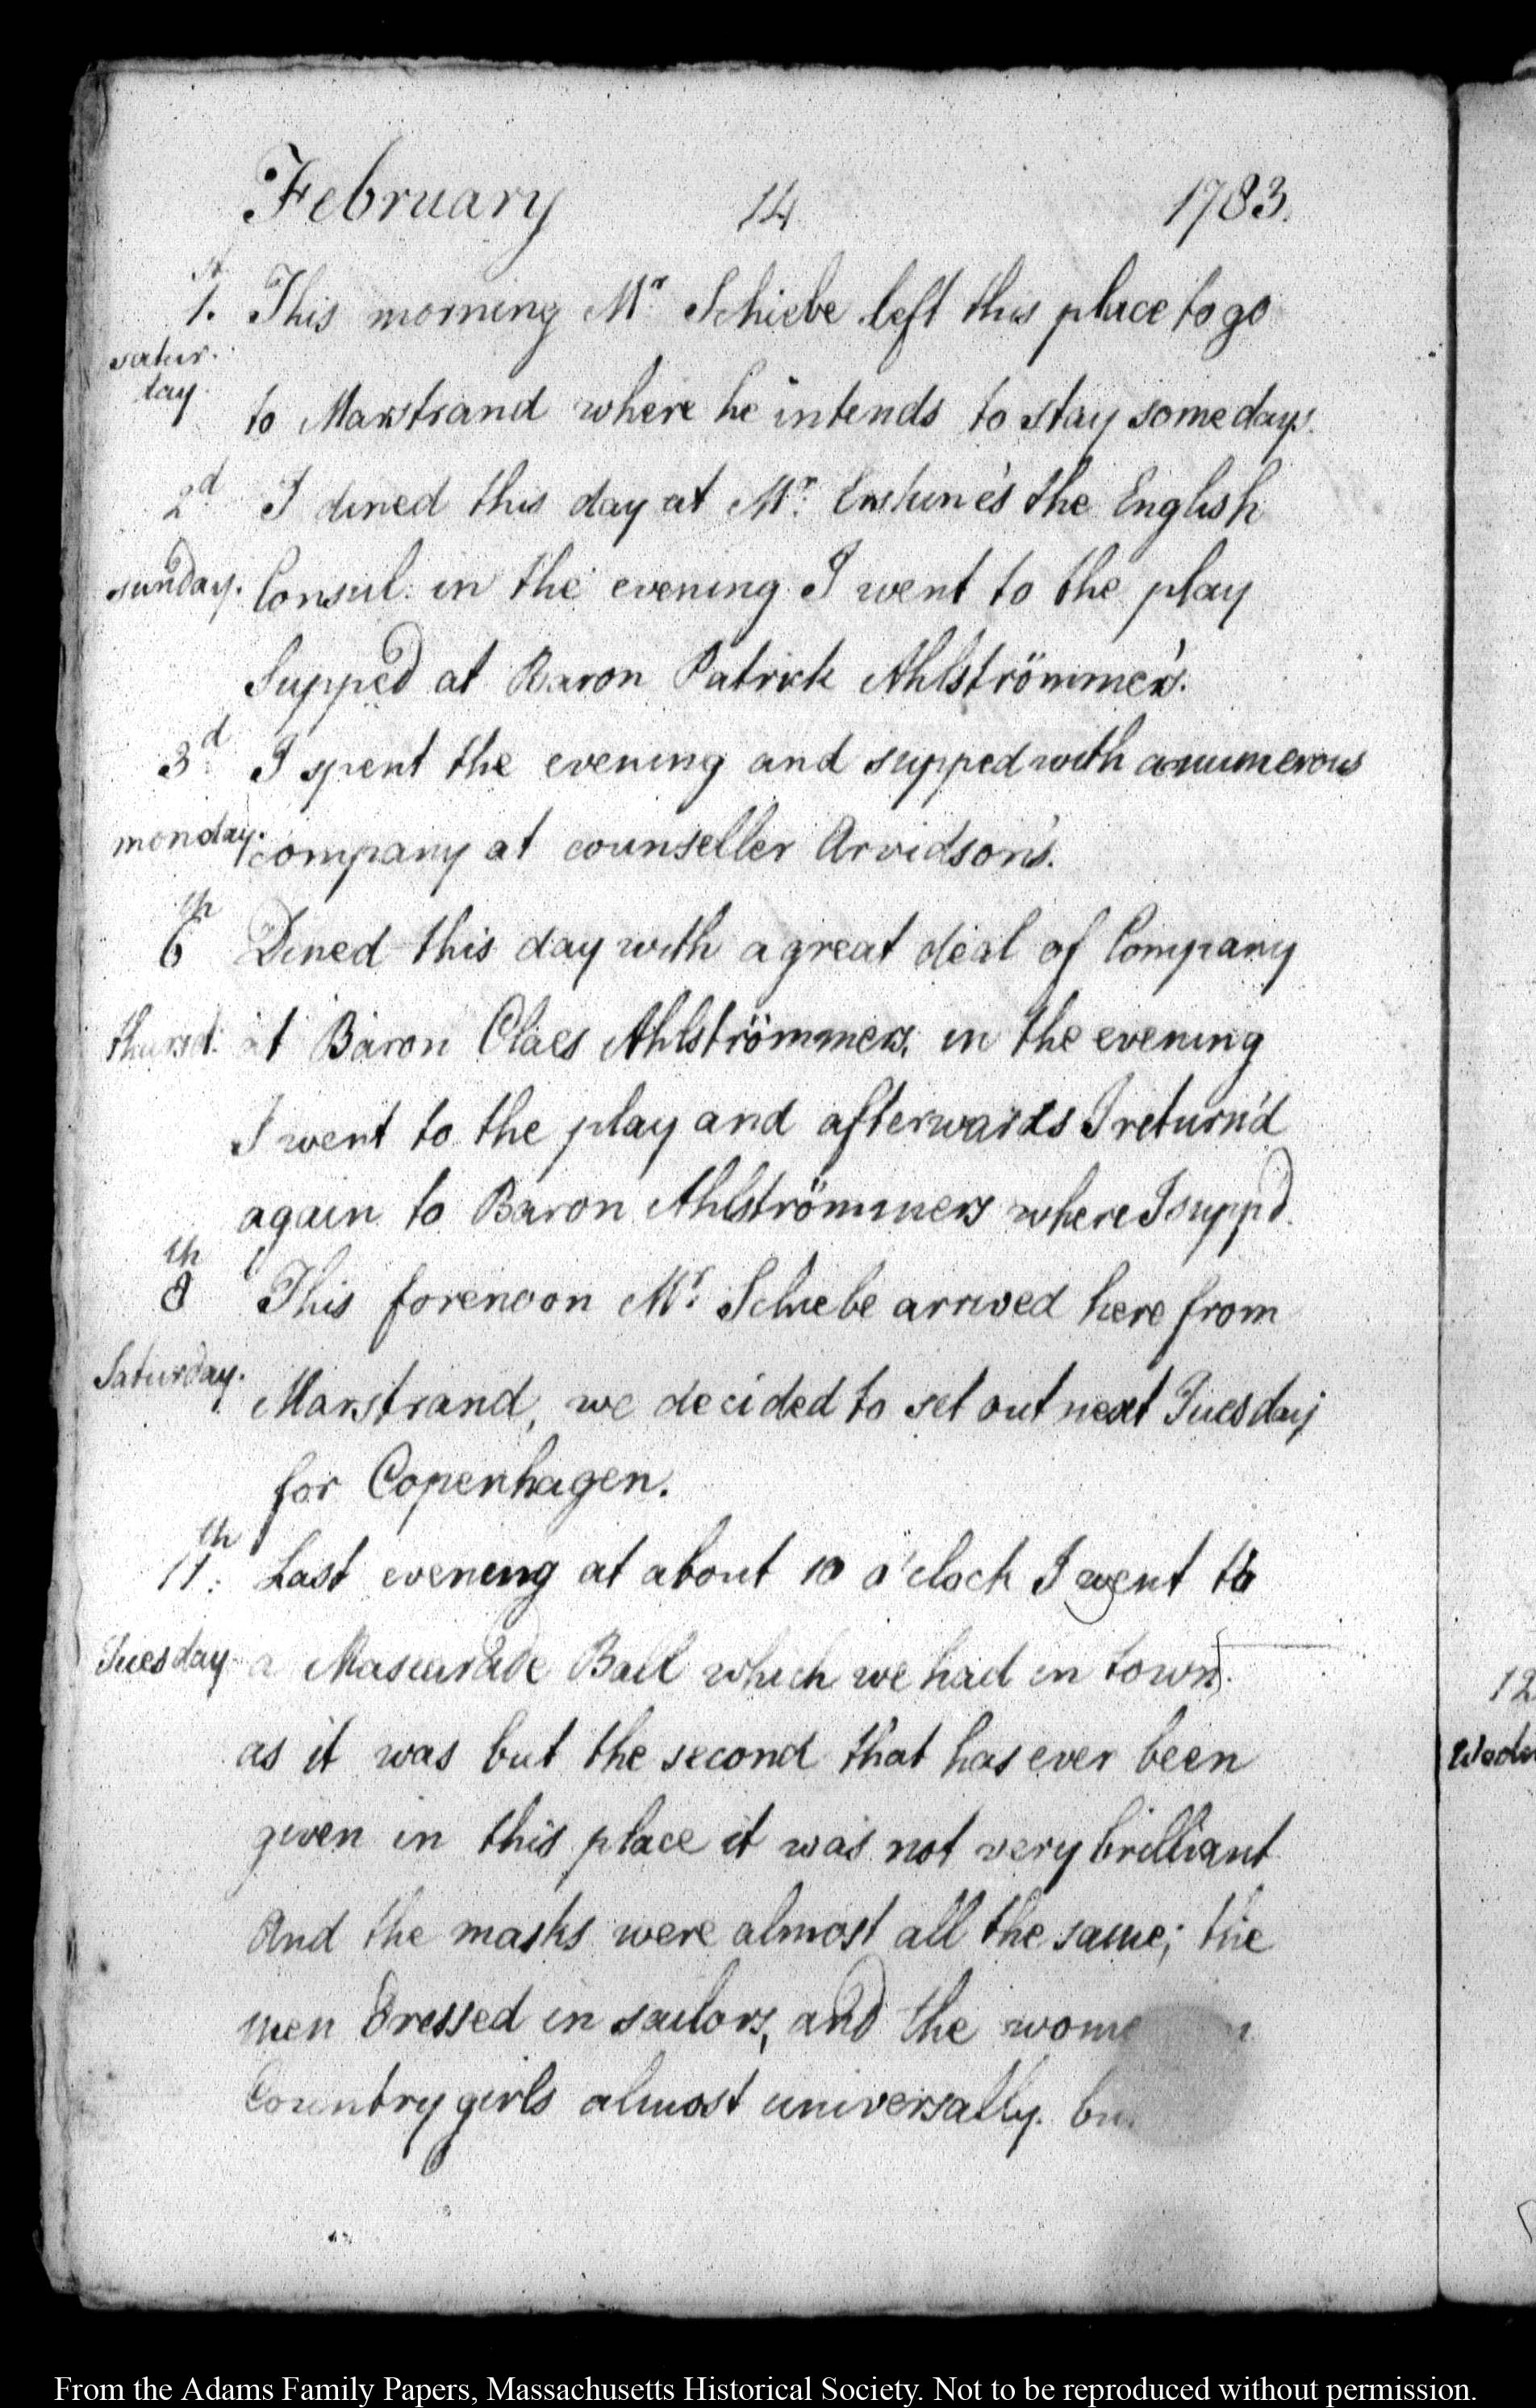 February 14 1783.
1.st This morning Mr. Schiebe left this place to go
satur.
day.
to Marstrand where he intends to stay some days.
2d I dined this day at Mr. Erskine's the English
sunday. Consul. in the evening I went to the play
Supped at Baron Patrick Ahlströmmer's.
3d I spent the evening and supped with a numerous
monday. company at counseller Arvidson's.
6th Dined this day with a great deal of Company
thursd. at Baron Claes Ahlströmmers. in the evening
I went to the play and afterwards I return'd
again to Baron Ahlströmmers where I supp'd.
8th This forenoon Mr. Schiebe arrived here from
Saturday. Marstrand, we decided to set out next Tuesday
for Copenhagen.
11th. Last evening at about 10 o'clock I went to
Tuesday a Mascarade Ball which we had in town.
as it was but the second that has ever been
given in this place it was not very brilliant
And the masks were almost all the same; the
men dressed in sailors, and the
Country girls almost universally.
12
From the Adams Family Papers, Massachusetts Historical Society. Not to be reproduced without permission.